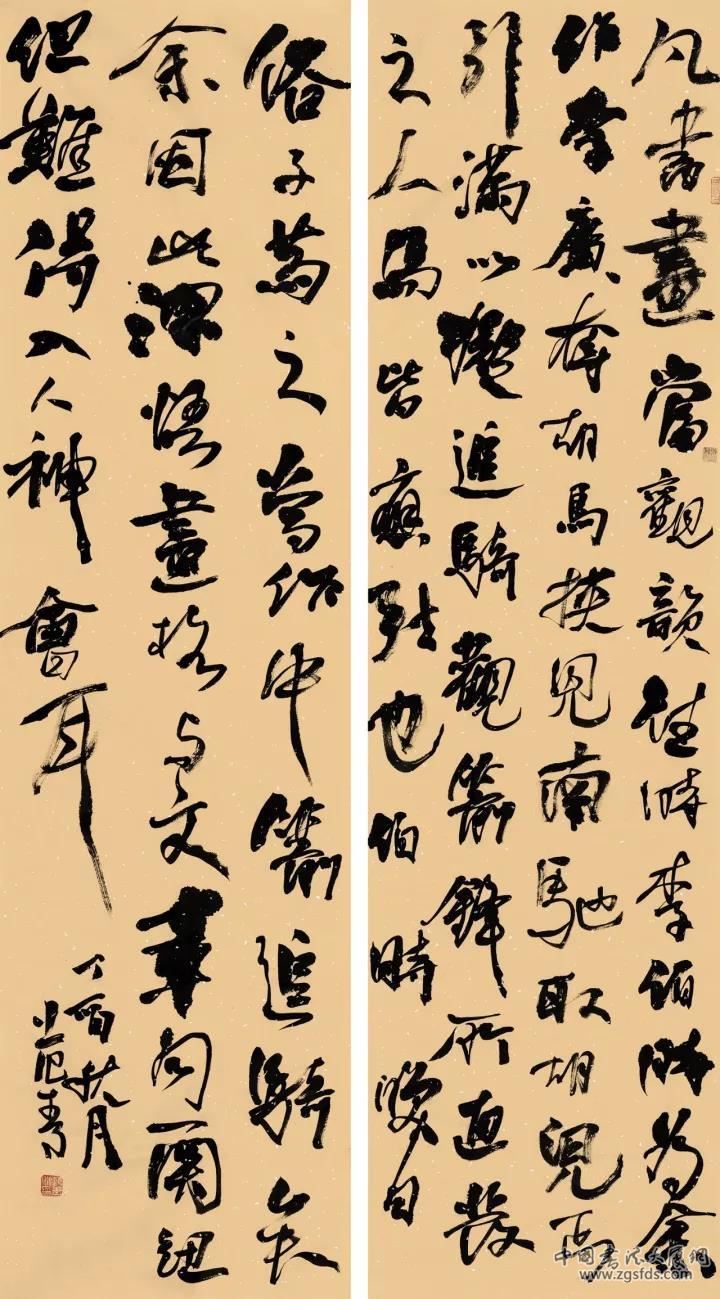 凡書畫當觀韻往時李伯時為余
作李廣奪胡馬挾兒南馳取胡兒弓
引滿以擬追騎觀箭鋒所直發
之人馬皆應弦也伯時笑曰
俗子為之當作中箭追騎矣
余因此深悟畫格與文章同關紐
但難得入人神會耳
丁酉秋月
www.zgsfds.com